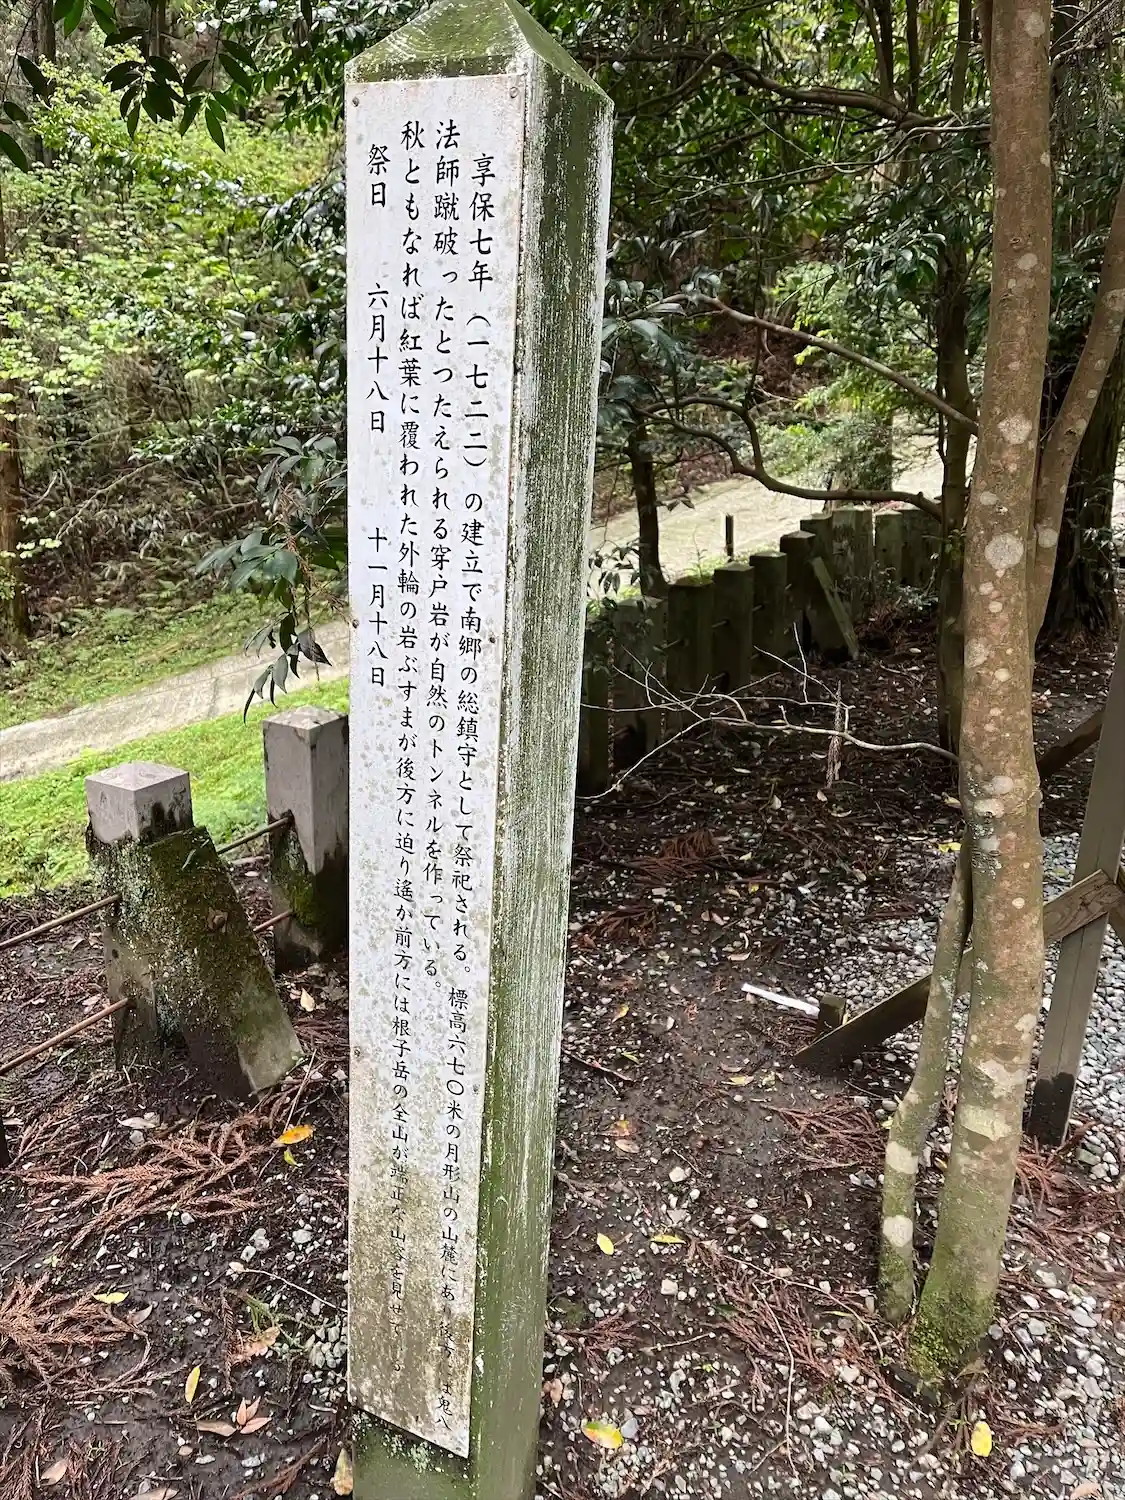 享保七年（一七二二）の建立で南郷の総鎮守として祭祀される。標高六七〇米の月形山の山麓にあ 鬼八
法師蹴破ったとつたえられる穿戸岩が自然のトンネルを作っている。
秋ともなれば紅葉に覆われた外輪の岩ぶすまが後方に迫り遙か前方には根子岳の全山が端正な山容を見せてる
祭日 六月十八日 十一月十八日